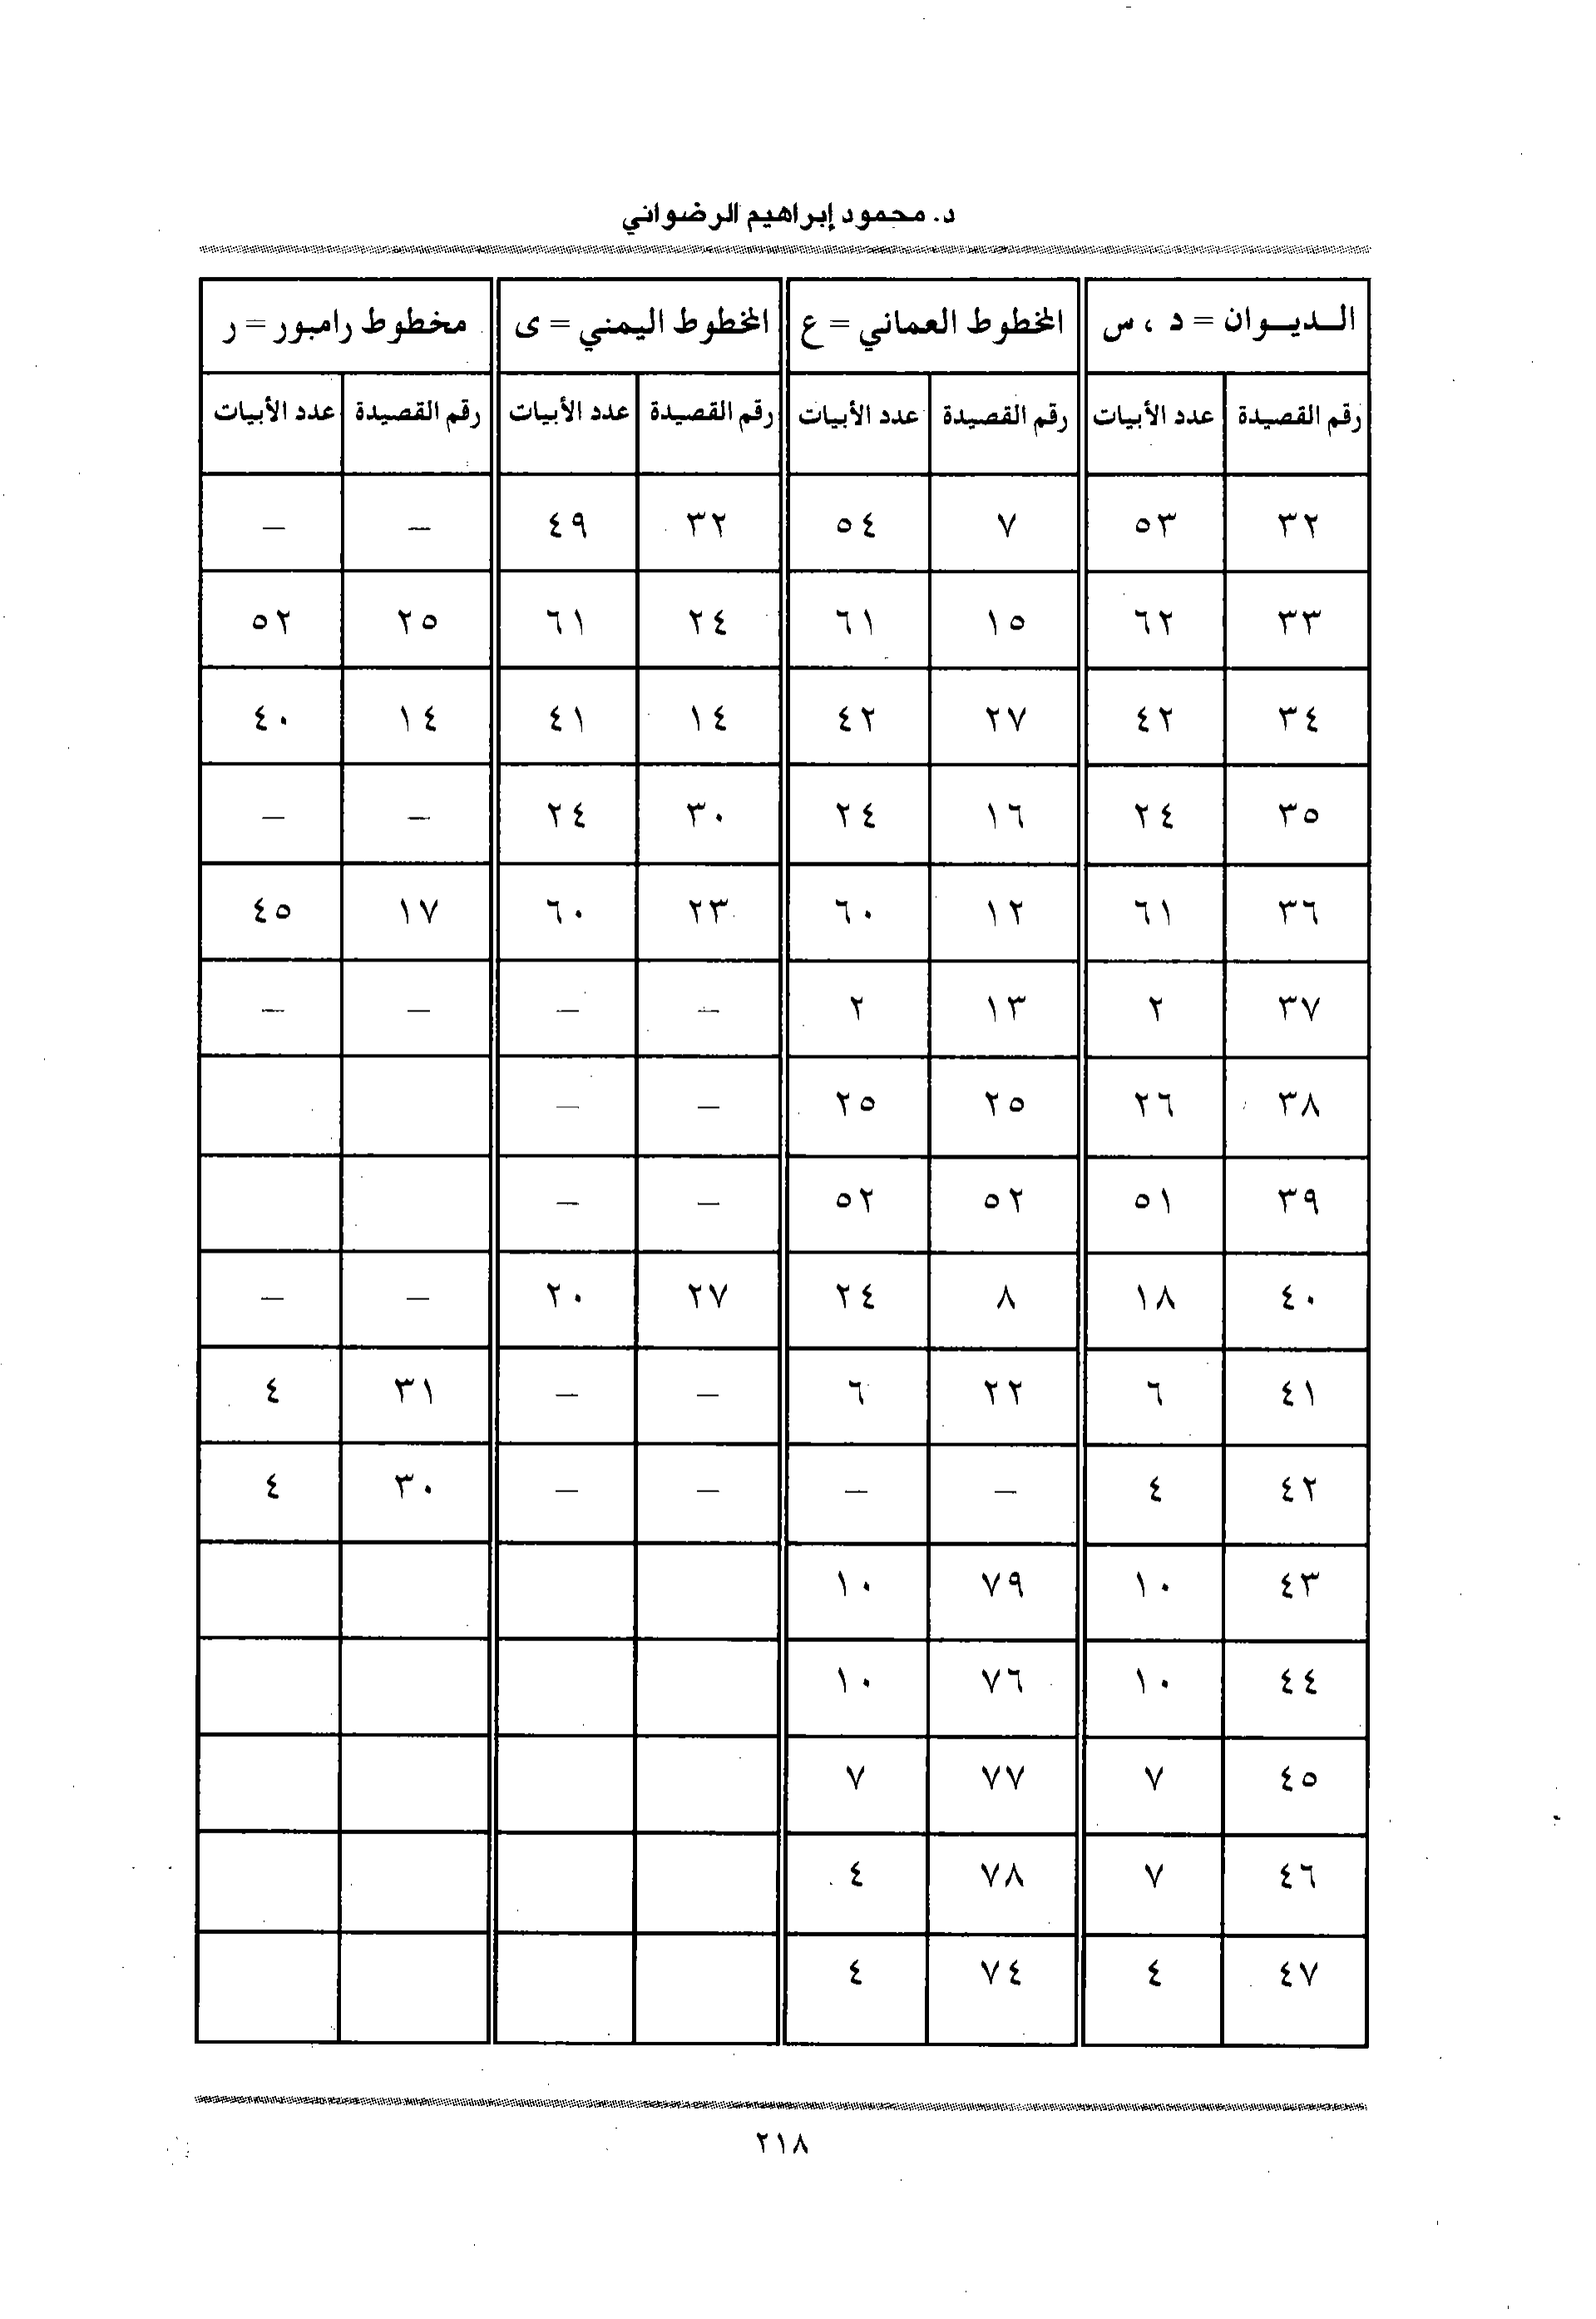 د. محمود إبراهيم الرضواني
الـديـوان = د ، س المخطوط العماني = ع المخطوط اليمني = ى مخطوط رامبور = ر
رقم القصيدة عدد الأبيات رقم القصيدة عدد الأبيات رقم القصيدة عدد الأبيات رقم القصيدة عدد الأبيات
٣٢ ٥٣ ٧ ٥٤ ٣٢ ٤٩ – –
٣٣ ٦٢ ١٥ ٦١ ٢٤ ٦١ ٢٥ ٥٢
٣٤ ٤٢ ٢٧ ٤٢ ١٤ ٤١ ١٤ ٤٠
٣٥ ٢٤ ١٦ ٢٤ ٣٠ ٢٤ – –
٣٦ ٦١ ١٢ ٦٠ ٢٣ ٦٠ ١٧ ٤٥
٣٧ ٢ ١٣ ٢ – – – –
٣٨ ٢٦ ٢٥ ٢٥ – –
٣٩ ٥١ ٥٢ ٥٢ – –
٤٠ ١٨ ٨ ٢٤ ٢٧ ٢٠ – –
٤١ ٦ ٢٢ ٦ – – ٣١ ٤
٤٢ ٤ – – – – ٣٠ ٤
٤٣ ١٠ ٧٩ ١٠
٤٤ ١٠ ٧٦ ١٠
٤٥ ٧ ٧٧ ٧
٤٦ ٧ ٧٨ ٤
٤٧ ٤ ٧٤ ٤
٢١٨